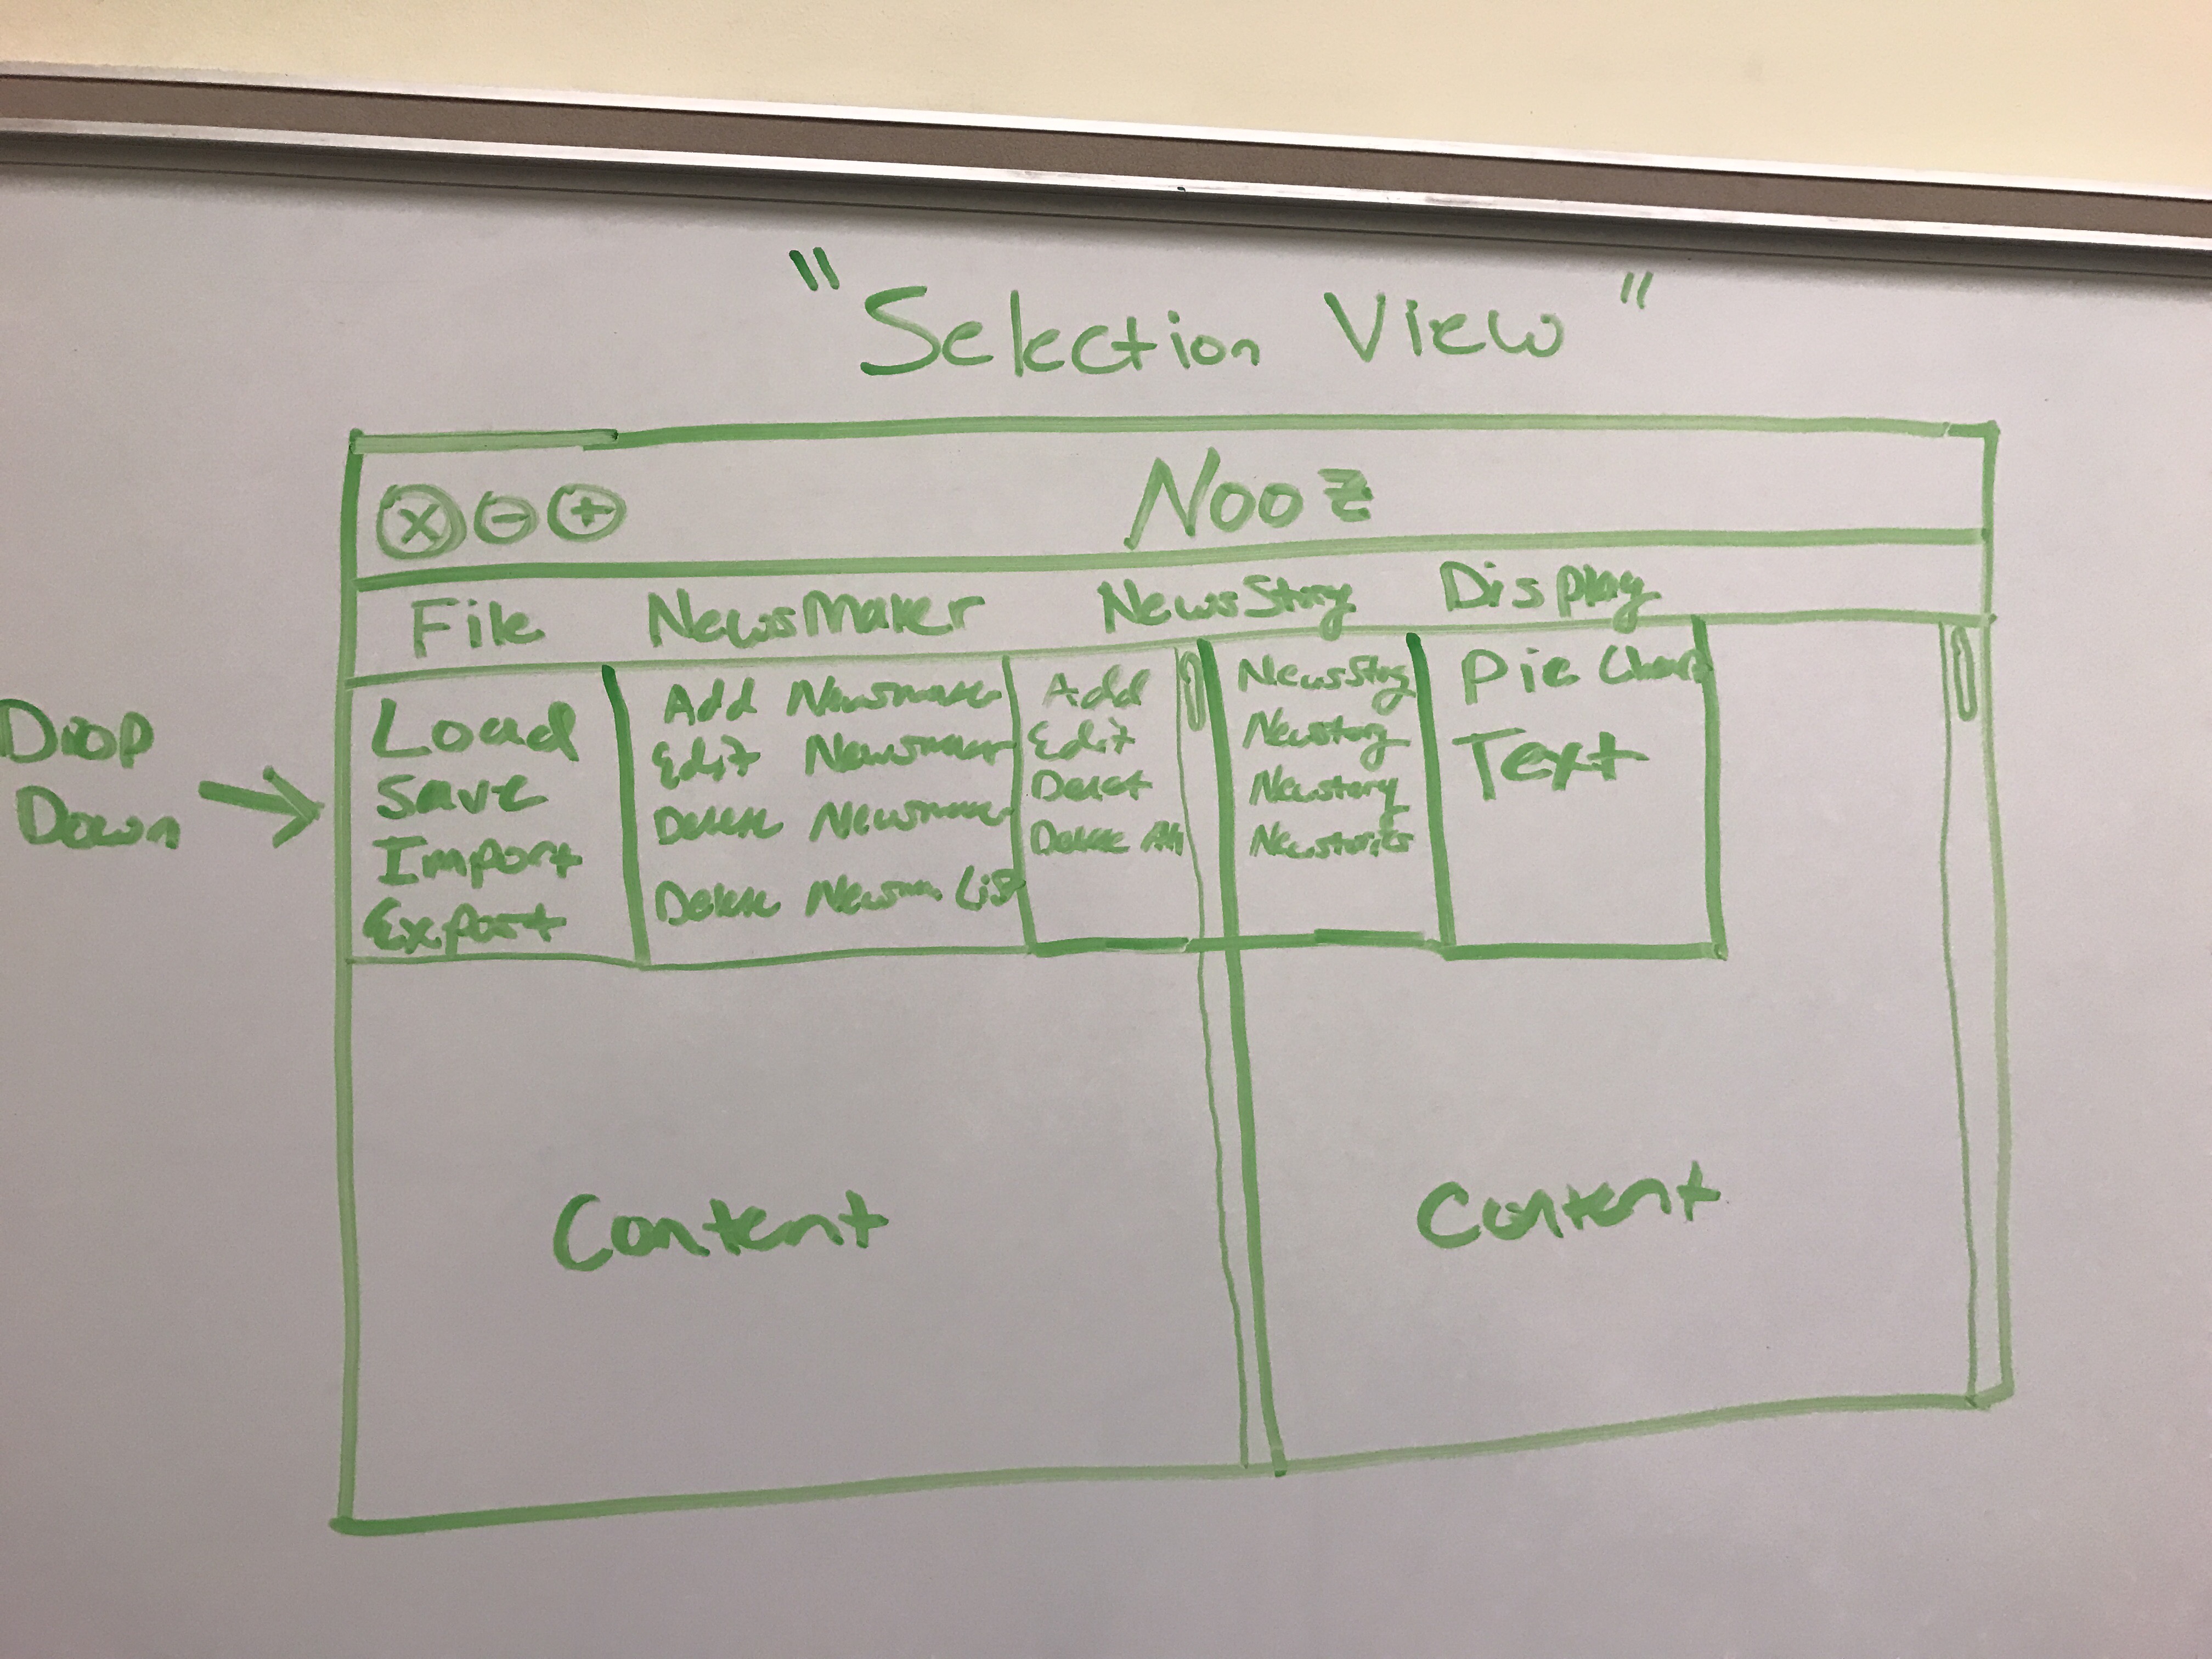 "Selection View"
X - + Nooz
File NewsMaker NewsStory Display
Drop
Down
Load
Save
Import
Export
Add Newsmaker
Edit Newsmaker
Delete Newsmaker
Delete Newsm. List
Add NewsStory
Edit Newstory
Delet Newstory
Delete All Newstories
Pie Chart
Text
Content Content